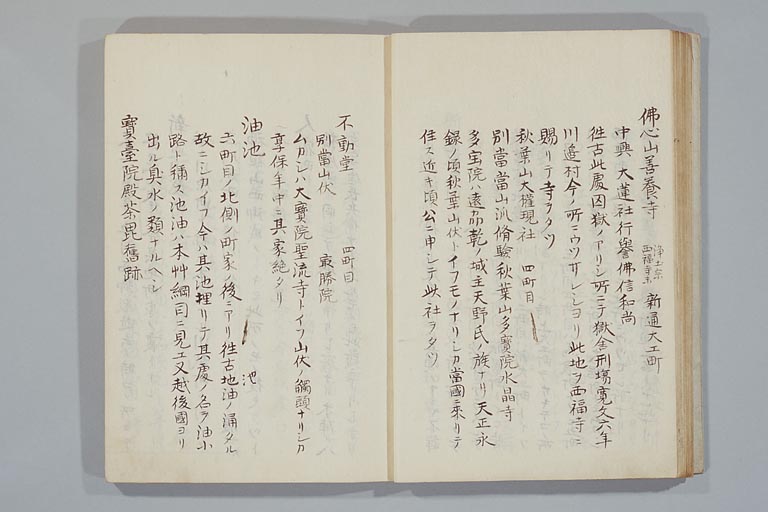 佛心山善養寺 浄土宗 西福寺末 新通大工町
中興 大蓮社行誉佛信和尚
徃古此處囚獄ノアリシ所ニテ獄舎刑場寛文六年
川邉村今ノ所ニウツサレシヨリ此地ヲ西福寺ニ
賜リテ寺タタツ
秋葉山大権現社 四町目
別當當山派脩驗秋葉山多寶院水晶寺
多宝院ハ遠州乾ノ城主天野氏ノ族ナリ天正永
録ノ頃秋葉山伏トイフモノナリシカ當國ニ來リテ
住ス近キ頃公ニ申シテ此社ヲタツ
不動堂 四町目
別當山伏 最勝院
ムカシハ大寶院聖流寺トイフ山伏ノ觸頭ナリシカ
享保年中ニ其家絶タリ
油池 池
六町目ノ北側ノ町家ノ後ニアリ徃古地油ノ涌タル
故ニシカイフ今ハ其池埋リテ其處ノ名ヲ油小
路ト稱ス池油ハ本艸綱目ニ見エ又越後國ヨリ
出ル臭水ノ類ナルヘシ
寶臺院殿荼毘舊跡